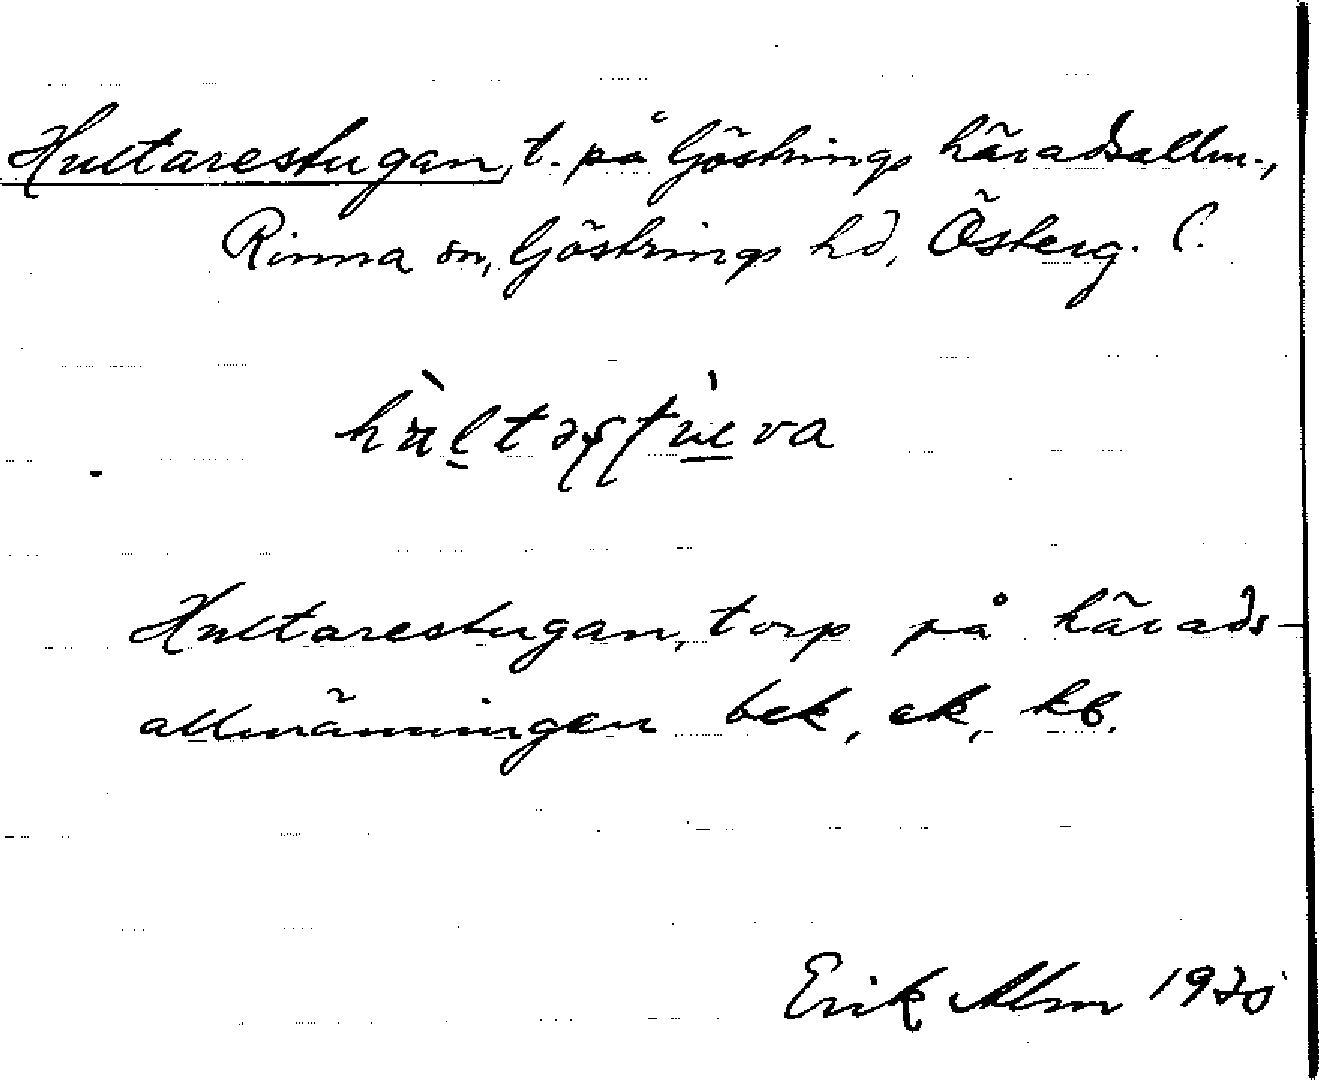 Hultarestugan, t. på Göstrings häradsallm.,
Rinna sn, Göstrings hd, Österg. l.
Hultarestugan, torp på härads-
allmänningen bek, ek, kb.
Erik Alm